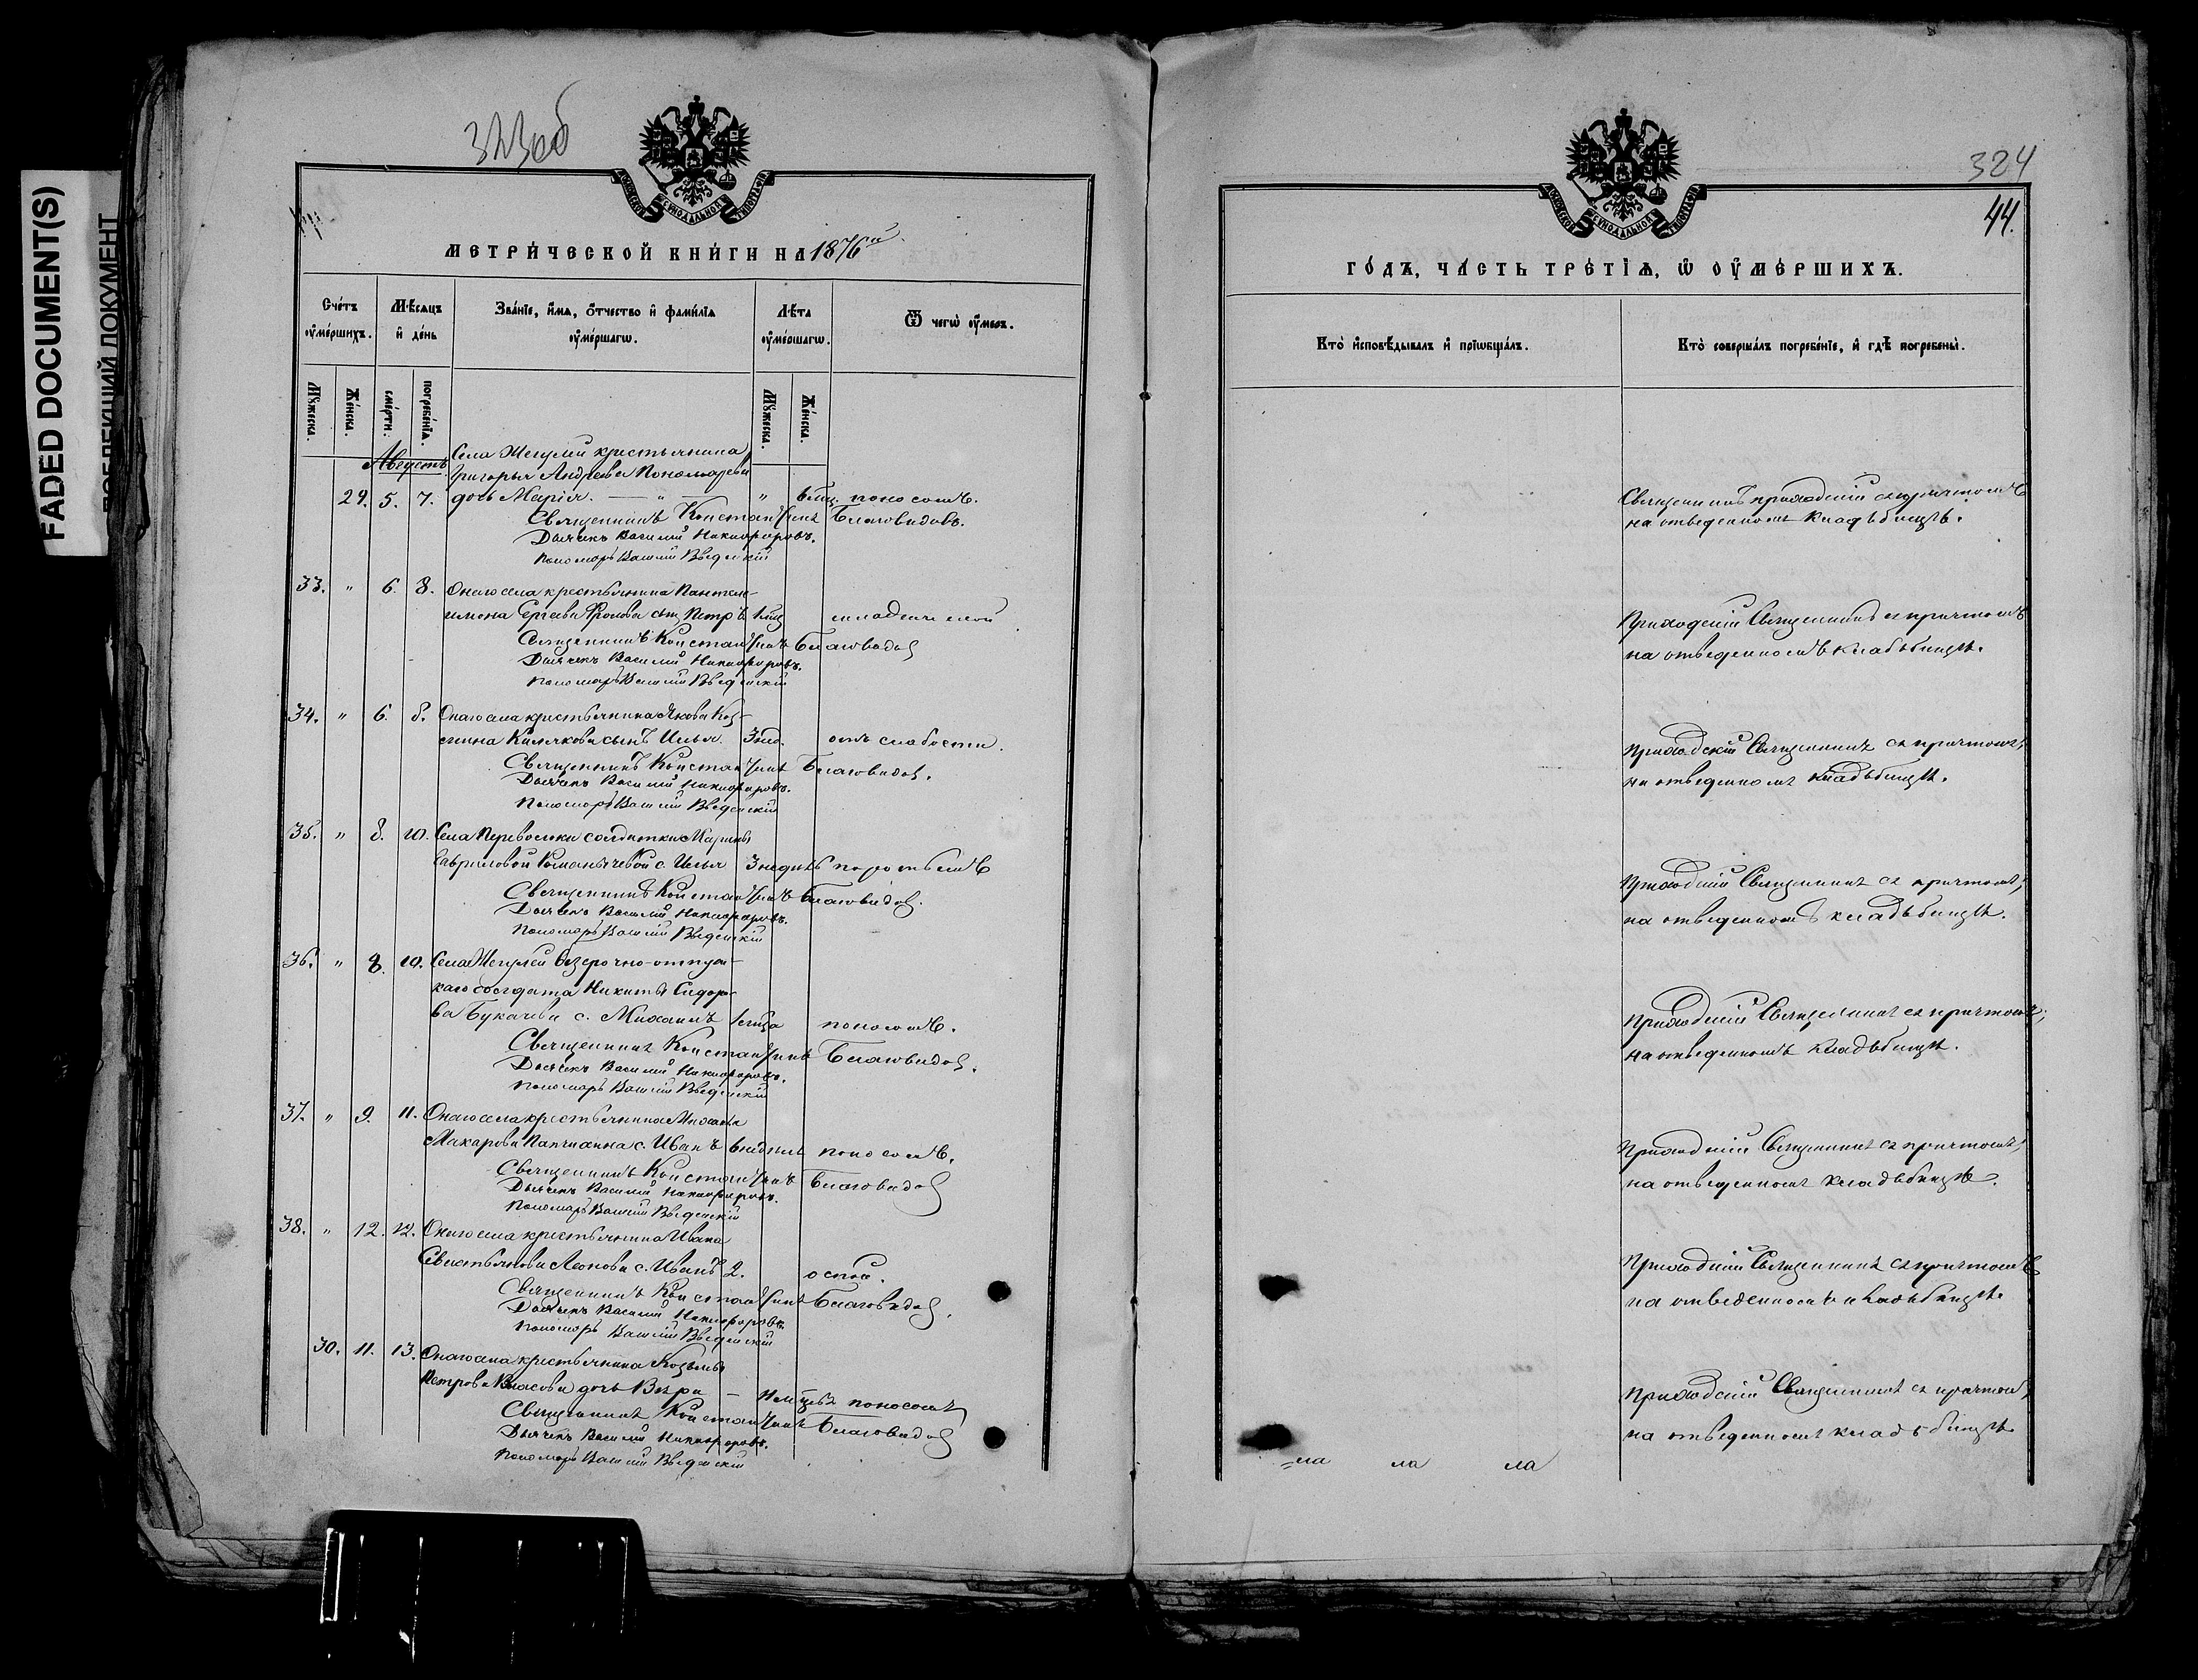 FADED DOCUMENT(S)
323об
МОСКОВСКОЙ СѴНОДАЛЬНОЙ ТИПОГРАФІИ
МЕТРИЧЕСКОЙ КНИГИ НА 1876й
Счетъ оумершихъ.
Мѣсяцъ и день
Званіе, имя, отчество и фамилія оумершагѡ.
Лѣта оумершагѡ.
Ѿ чегѡ оумеръ.
Мужеска.
Женска.
смерти:
погребенія.
Мужеска.
Женска.
Августъ
Села Жегулей крестьянина
Григорья Андреева Пономарева
29. 5. 7. дочь Марія. — " — " 6 мц. поносомъ.
Священникъ Константинъ Благовидовъ.
Дьячекъ Василій Никифоровъ.
Пономарь Василій Введенскій
33. " 6. 8. Онаго села крестьянина Пантеле-
имона Сергѣева Фролова сынъ Петръ 1 мц младенческой
Священникъ Константинъ Благовидов
Дьячекъ Василій Никифоровъ.
Пономарь Василій Введенскій
34. " 6. 8. Онаго села крестьянина Якова Коз-
мина сынъ Илья. 3 отъ слабости.
Священникъ Константинъ Благовидов.
Дьячекъ Василій Никифоровъ.
Пономарь Василій Введенскій
35. " 8. 10. Села Переволоки солдатки Марины
Гавриловой Романычевой с. Илья 3 недѣль поносомъ
Священникъ Константинъ Благовидов.
Дьячекъ Василій Никифоровъ.
Пономарь Василій Введенскій
36. " 8. 10. Села Жегулей безсрочно-отпуск-
наго солдата Никиты Сидоро-
ва Букачева с. Михаилъ поносомъ.
Священникъ Константинъ Благовидов.
Дьячекъ Василій Никифоровъ.
Пономарь Василій Введенскій
37. " 9. 11. Онаго села крестьянина Михаила
Макарова с. Иванъ 6 недѣль поносомъ.
Священникъ Константинъ Благовидов
Дьячекъ Василій Никифоровъ.
Пономарь Василій Введенскій
38. " 12. 12. Онаго села крестьянина Ивана
Севастьянова Леонова с. Иванъ 2. оспой.
Священникъ Константинъ Благовидов.
Дьячекъ Василій Никифоровъ.
Пономарь Василій Введенскій
30. 11. 13. Онаго села крестьянина Козьмы
Петрова Власова дочь Вѣра — поносомъ
Священникъ Константинъ Благовидов
Дьячекъ Василій Никифоровъ.
Пономарь Василій Введенскій
324
44.
МОСКОВСКОЙ СѴНОДАЛЬНОЙ ТИПОГРАФІИ
ГОДЪ, ЧАСТЬ ТРЕТІѦ, Ѡ ОУМЕРШИХЪ.
Кто исповѣдывалъ и пріѡбщалъ.
Кто совершалъ погребеніе, и гдѣ погребены.
Священникъ приходскій съ причтомъ
на отведенномъ кладьбищѣ.
Приходскій Священникъ съ причтомъ
на отведенномъ кладьбищѣ.
Приходскій Священникъ съ причтомъ,
на отведенномъ кладьбищѣ.
Приходскій Священникъ съ причтомъ,
на отведенномъ кладьбищѣ.
Приходскій Священникъ съ причтомъ,
на отведенномъ кладьбищѣ.
Приходскій Священникъ съ причтомъ,
на отведенномъ кладьбищѣ.
Приходскій Священникъ съ причтомъ
на отведенномъ кладьбищѣ.
Приходскій Священникъ съ причтом,
на отведенномъ кладьбищѣ.
ла ла ла